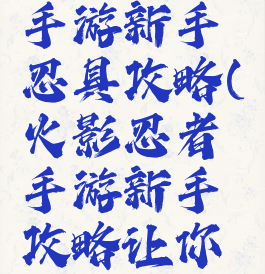 手游新手
忍具攻略(
火影忍者
手游新手
攻略让你